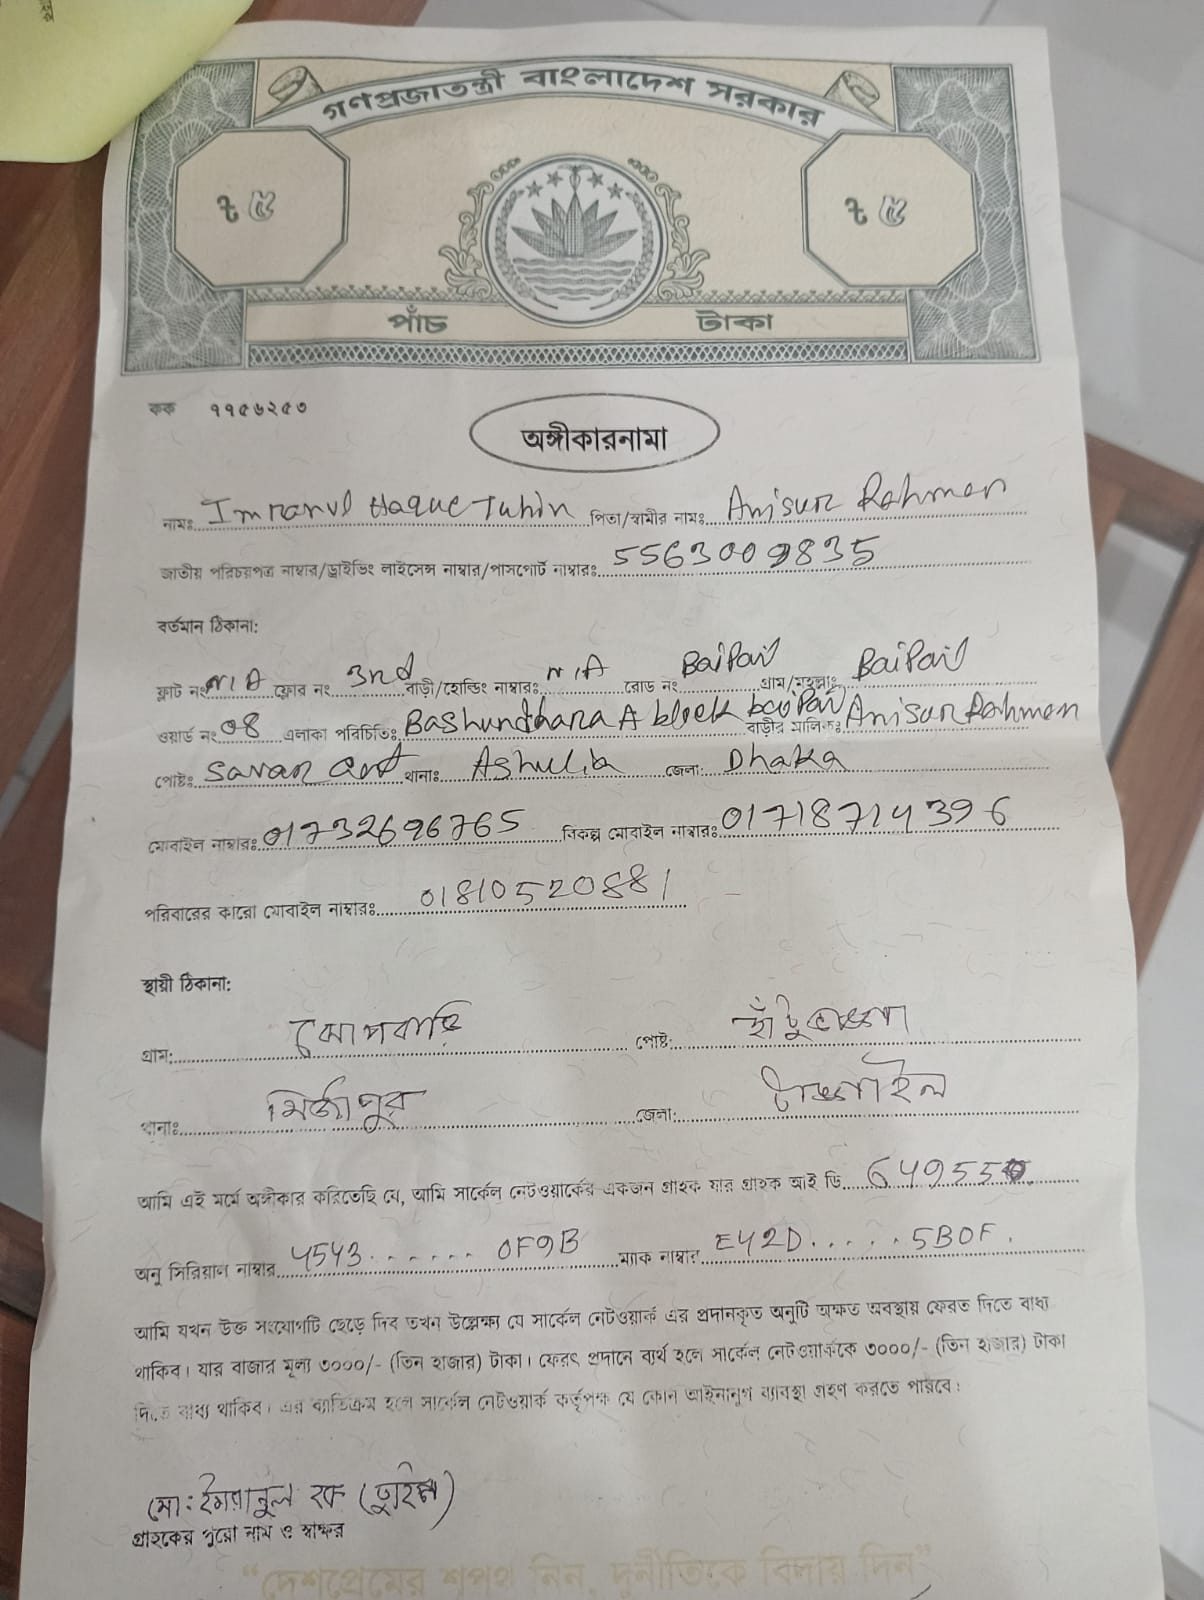 গণপ্রজাতন্ত্রী বাংলাদেশ সরকার
৳ ৫ ৳ ৫
পাঁচ টাকা
কক ৭৭৫৬২৫৩
অঙ্গীকারনামা
নামঃ Imranul Haque Tuhin পিতা/স্বামীর নামঃ Anisur Rahman
জাতীয় পরিচয়পত্র নাম্বার/ড্রাইভিং লাইসেন্স নাম্বার/পাসপোর্ট নাম্বারঃ 5563009835
বর্তমান ঠিকানা:
ফ্লাট নং N/A ফ্লোর নং 3nd বাড়ী/হোল্ডিং নাম্বারঃ N/A রোড নং Baipail গ্রাম/মহল্লাঃ Baipail
ওয়ার্ড নং 08 এলাকা পরিচিতিঃ Bashundhara A block baipail বাড়ীর মালিকঃ Anisur Rahman
পোষ্টঃ Savar থানাঃ Ashulia জেলা: Dhaka
মোবাইল নাম্বারঃ 01732696765 বিকল্প মোবাইল নাম্বারঃ 01718714396
পরিবারের কারো মোবাইল নাম্বারঃ 01810520881
স্থায়ী ঠিকানা:
গ্রাম: পোষ্ট:
থানাঃ মির্জাপুর জেলা: টাঙ্গাইল
আমি এই মর্মে অঙ্গীকার করিতেছি যে, আমি সার্কেল নেটওয়ার্কের একজন গ্রাহক যার গ্রাহক আই ডি
অনু সিরিয়াল নাম্বার 4543...... 0F9B ম্যাক নাম্বার E42D.....5B0F.
আমি যখন উক্ত সংযোগটি ছেড়ে দিব তখন উল্লেক্ষ্য যে সার্কেল নেটওয়ার্ক এর প্রদানকৃত অনুটি অক্ষত অবস্থায় ফেরত দিতে বাধ্য
থাকিব। যার বাজার মূল্য ৩০০০/- (তিন হাজার) টাকা। ফেরৎ প্রদানে ব্যর্থ হলে সার্কেল নেটওয়ার্ককে ৩০০০/- (তিন হাজার) টাকা
দিতে বাধ্য থাকিব। এর ব্যতিক্রম হলে সার্কেল নেটওয়ার্ক কর্তৃপক্ষ যে কোন আইনানুগ ব্যাবস্থা গ্রহণ করতে পারবে।
মো: ইমরানুল হক (তুহিন)
গ্রাহকের পুরো নাম ও স্বাক্ষর
“দেশপ্রেমের শপথ নিন, দুর্নীতিকে বিদায় দিন”